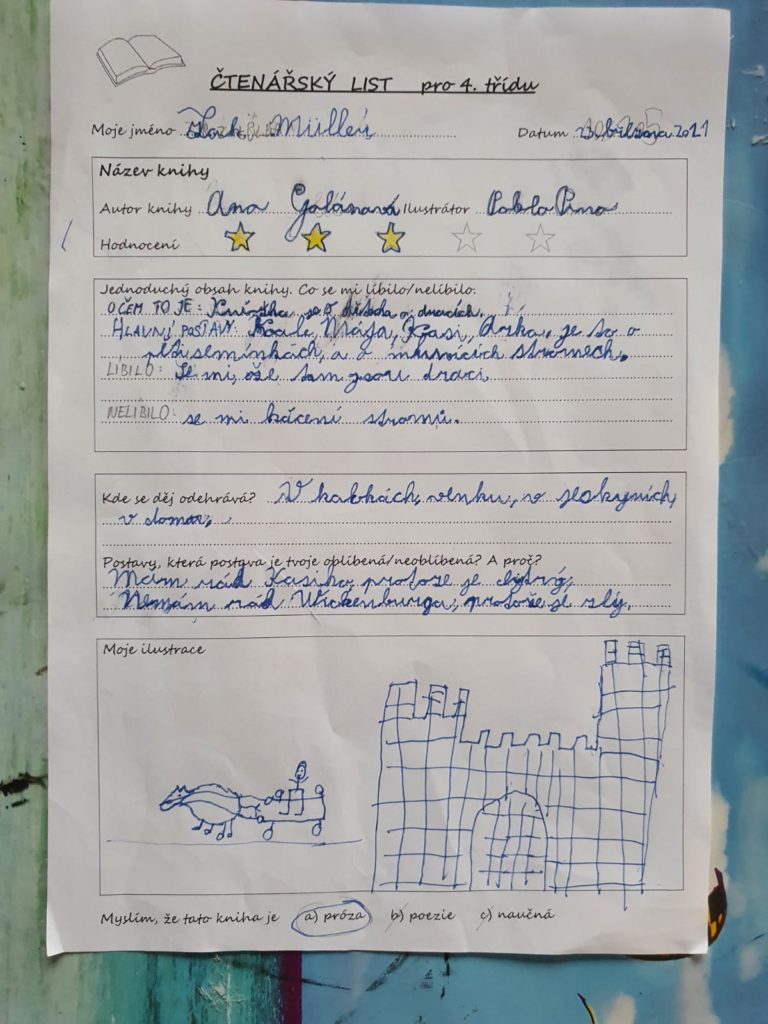 ČTENÁŘSKÝ LIST pro 4. třídu
Moje jméno Müller Datum března 2021
Název knihy
Autor knihy Ana Galánová Ilustrátor Pablo Pino
Hodnocení
Jednoduchý obsah knihy. Co se mi líbilo/nelíbilo.
O ČEM TO JE: Knížka je o o dracích.
HLAVNÍ POSTAVY: Koale, Mája, Kasi, Arka, je to o
pěti semínkách, a o mluvících stromech.
LÍBILO: Se mi, že tam jsou draci
NELÍBILO: se mi kácení stromů.
Kde se děj odehrává? V kobkách, venku, v jeskyních,
v domar,
Postavy, která postava je tvoje oblíbená/neoblíbená? A proč?
Mám rád Kasiho, protože je chytrý,
Nemám rád Wickenburga, protože je zlý.
Moje ilustrace
Myslím, že tato kniha je a) próza b) poezie c) naučná